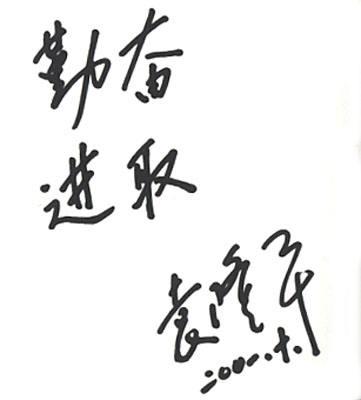 勤奋
进取
袁隆平
2001.10.